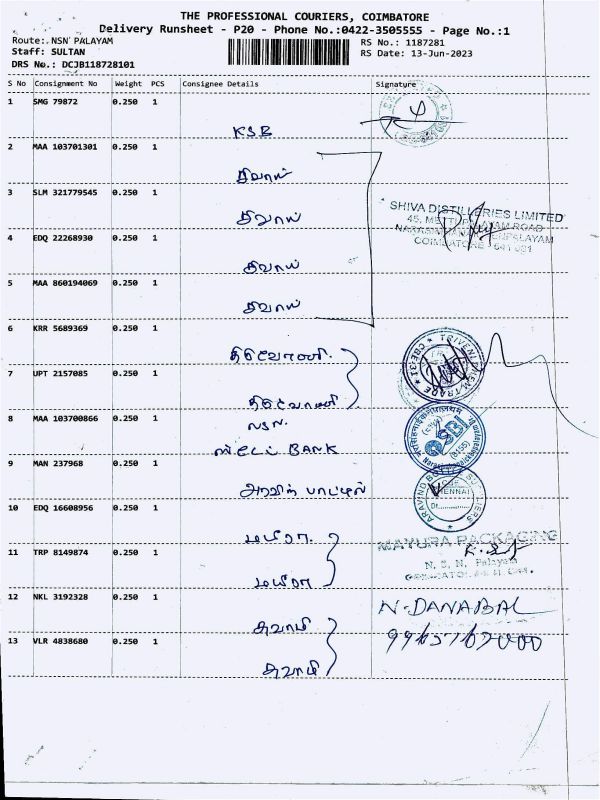 THE PROFESSIONAL COURIERS, COIMBATORE
Delivery Runsheet - P20 - Phone No.:0422-3505555 - Page No.:1
Route: NSN PALAYAM
RS No.: 1187281
Staff: SULTAN
RS Date: 13-Jun-2023
DRS No.: DCJB118728101
S No Consignment No Weight PCS Consignee Details Signature
1 SMG 79872 0.250 1
KSB
2 MAA 103701301 0.250 1
சிவாஸ்
3 SLM 321779545 0.250 1
சிவாஸ்
SHIVA DISTILLERIES LIMITED
COIMBATORE - 641 031
4 EDQ 22268930 0.250 1
சிவாஸ்
5 MAA 860194069 0.250 1
சிவாஸ்
6 KRR 5689369 0.250 1
திரிவேணி
TRIVENI
CBE-31
7 UPT 2157085 0.250 1
திரிவேணி
8 MAA 103700866 0.250 1
BANK
SBI
9 MAN 237968 0.250 1
அரவிந்
ARAVIND
CHENNAI
10 EDQ 16608956 0.250 1
மயூரா
MAYURA PACKAGING
N. S. N. Palayam
11 TRP 8149874 0.250 1
மயூரா
12 NKL 3192328 0.250 1
சுவாமி
N. DANABAL
13 VLR 4838680 0.250 1
சுவாமி